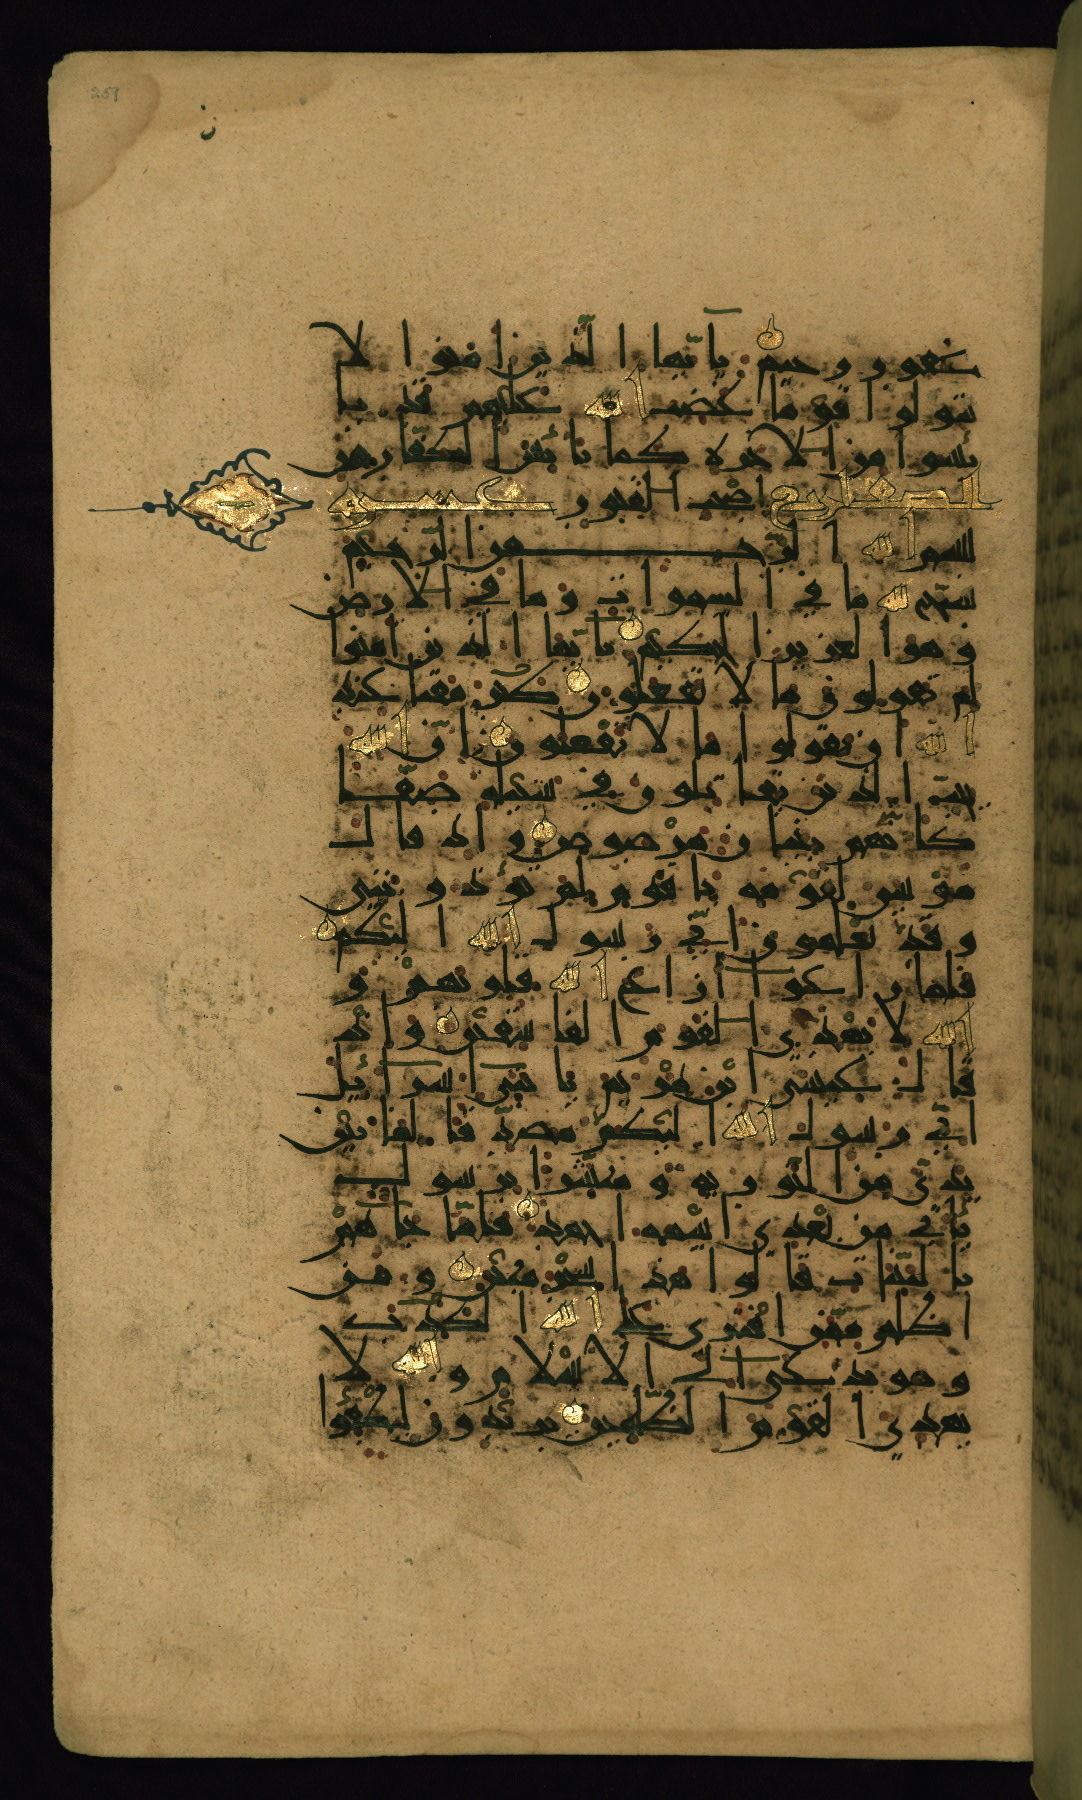 259
غفور رحيم يأيها الذين امنوا لا
تتولوا قوما غضب الله عليهم قد يا
يسوا من الاخرة كما يائس الكفار من
الصف اربع اصحب القبور عشرة
بسم الله الرحمن الرحيم
سبح لله ما في السموات وما في الارض
وهو العزيز الحكيم يأيها الذين امنوا
لم تقولون ما لا تفعلون كبر مقتا عند
الله ان تقولوا ما لا تفعلون ان الله
يحب الذين يقاتلون في سبيله صفا
كانهم بنيان مرصوص واذ قال
موسى لقومه ياقوم لم تؤذونني
وقد تعلمون اني رسول الله اليكم
فلما زاغوا ازاغ الله قلوبهم و
الله لا يهدي القوم الفاسقين واذ
قال عيسى ابن مريم يابني اسرائيل
اني رسول الله اليكم مصدقا لما بين
يدي من التورية ومبشرا برسول
يأتي من بعدي اسمه احمد فلما جاهم
بالبينات قالوا هذا سحر مبين ومن
اظلم ممن افترى على الله الكذب
وهو يدعى الى الاسلام والله لا
يهدي القوم الظلمين يريدون ليطفؤا